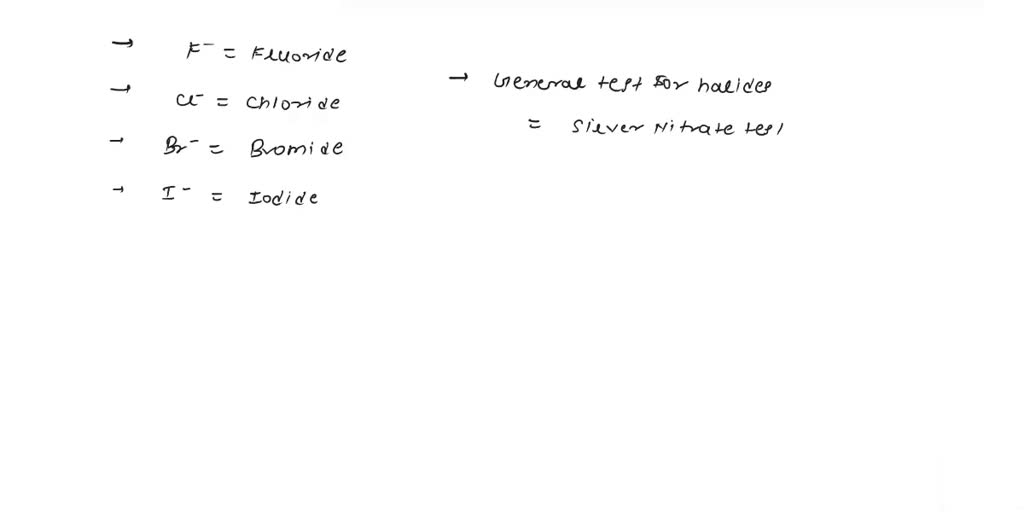 → F⁻ = Fluoride
→ Cl⁻ = Chloride
→ Br⁻ = Bromide
→ I⁻ = Iodide
→ General test for halides
= Silver Nitrate test